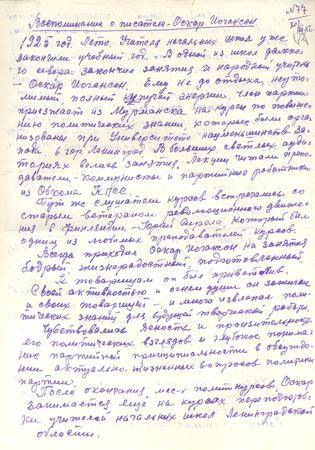 N 77
Воспоминание о писателе – Оскар Иогансон
1925 год. Лето. Учителя начальных школ уже
закончили учебный год. В одной из школ далеко-
го севера закончил занятия и народный учитель
– Оскар Иогансон. Ему не до отдыха, неуто-
мимый, полный кипучей энергии, член партии
приезжает из Мурманска на курсы по повыше-
нию политических знаний, которые были орга-
низованы при Университете нацменьшинств За-
пада в гор. Ленинград. В больших светлых ауди-
ториях велись занятия. Лекции читали препо-
даватели – коммунисты и партийные работники
из Обкома КПСС.
Тут же слушатели курсов встречались со
старым ветераном революционного движе-
ния в Финляндии – который был
одним из любимых преподавателей курсов.
Всегда приходил Оскар Иогансон на занятия
бодрый, жизнерадостный, подготовленный.
К товарищам он был приветлив.
Своей активностью и огнем души он зажигал
и своих товарищей – и много извлекал поли-
тических знаний для будущей творческой работы
Чувствовалась ясность и
его политических взглядов и глубокое понима-
ние партийной принципиальности в обсужде-
нии актуально-жизненных вопросов политики
партии.
После окончания мес-х политкурсов, Оскар
занимается еще на курсах переподготов-
ки учителей начальных школ Ленинградской
области.